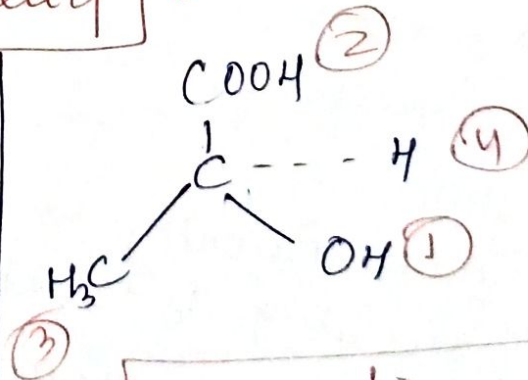 COOH ②
C H ④
H₃C OH ①
③